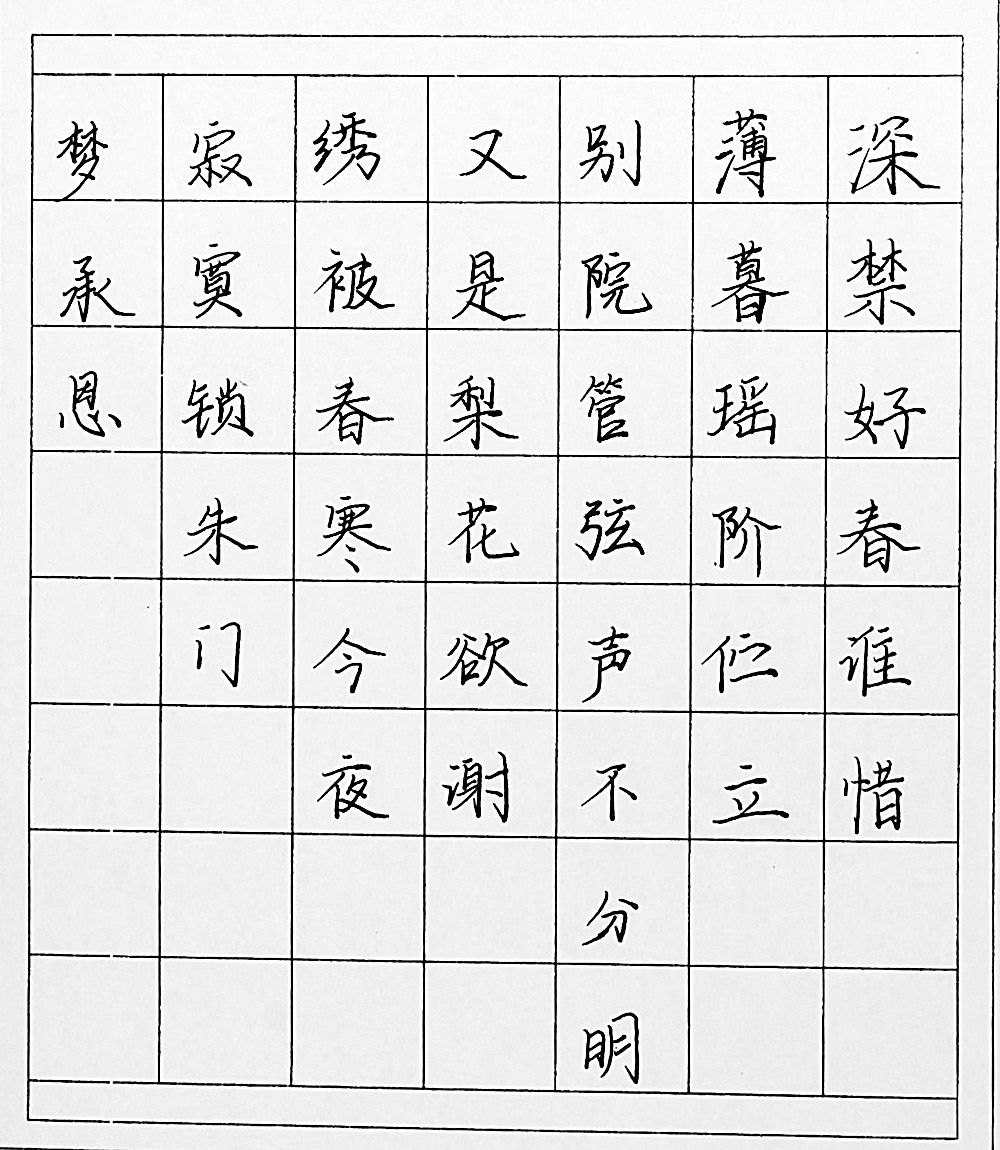 深禁好春谁惜
薄暮瑶阶伫立
别院管弦声不分明
又是梨花欲谢
绣被春寒今夜
寂寞锁朱门
梦承恩